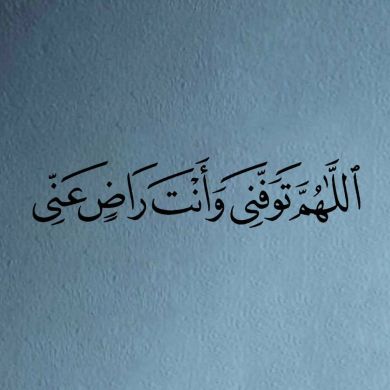 ٱللَّٰهُمَّ تَوَفَّنِي وَأَنْتَ رَاضٍ عَنِّي